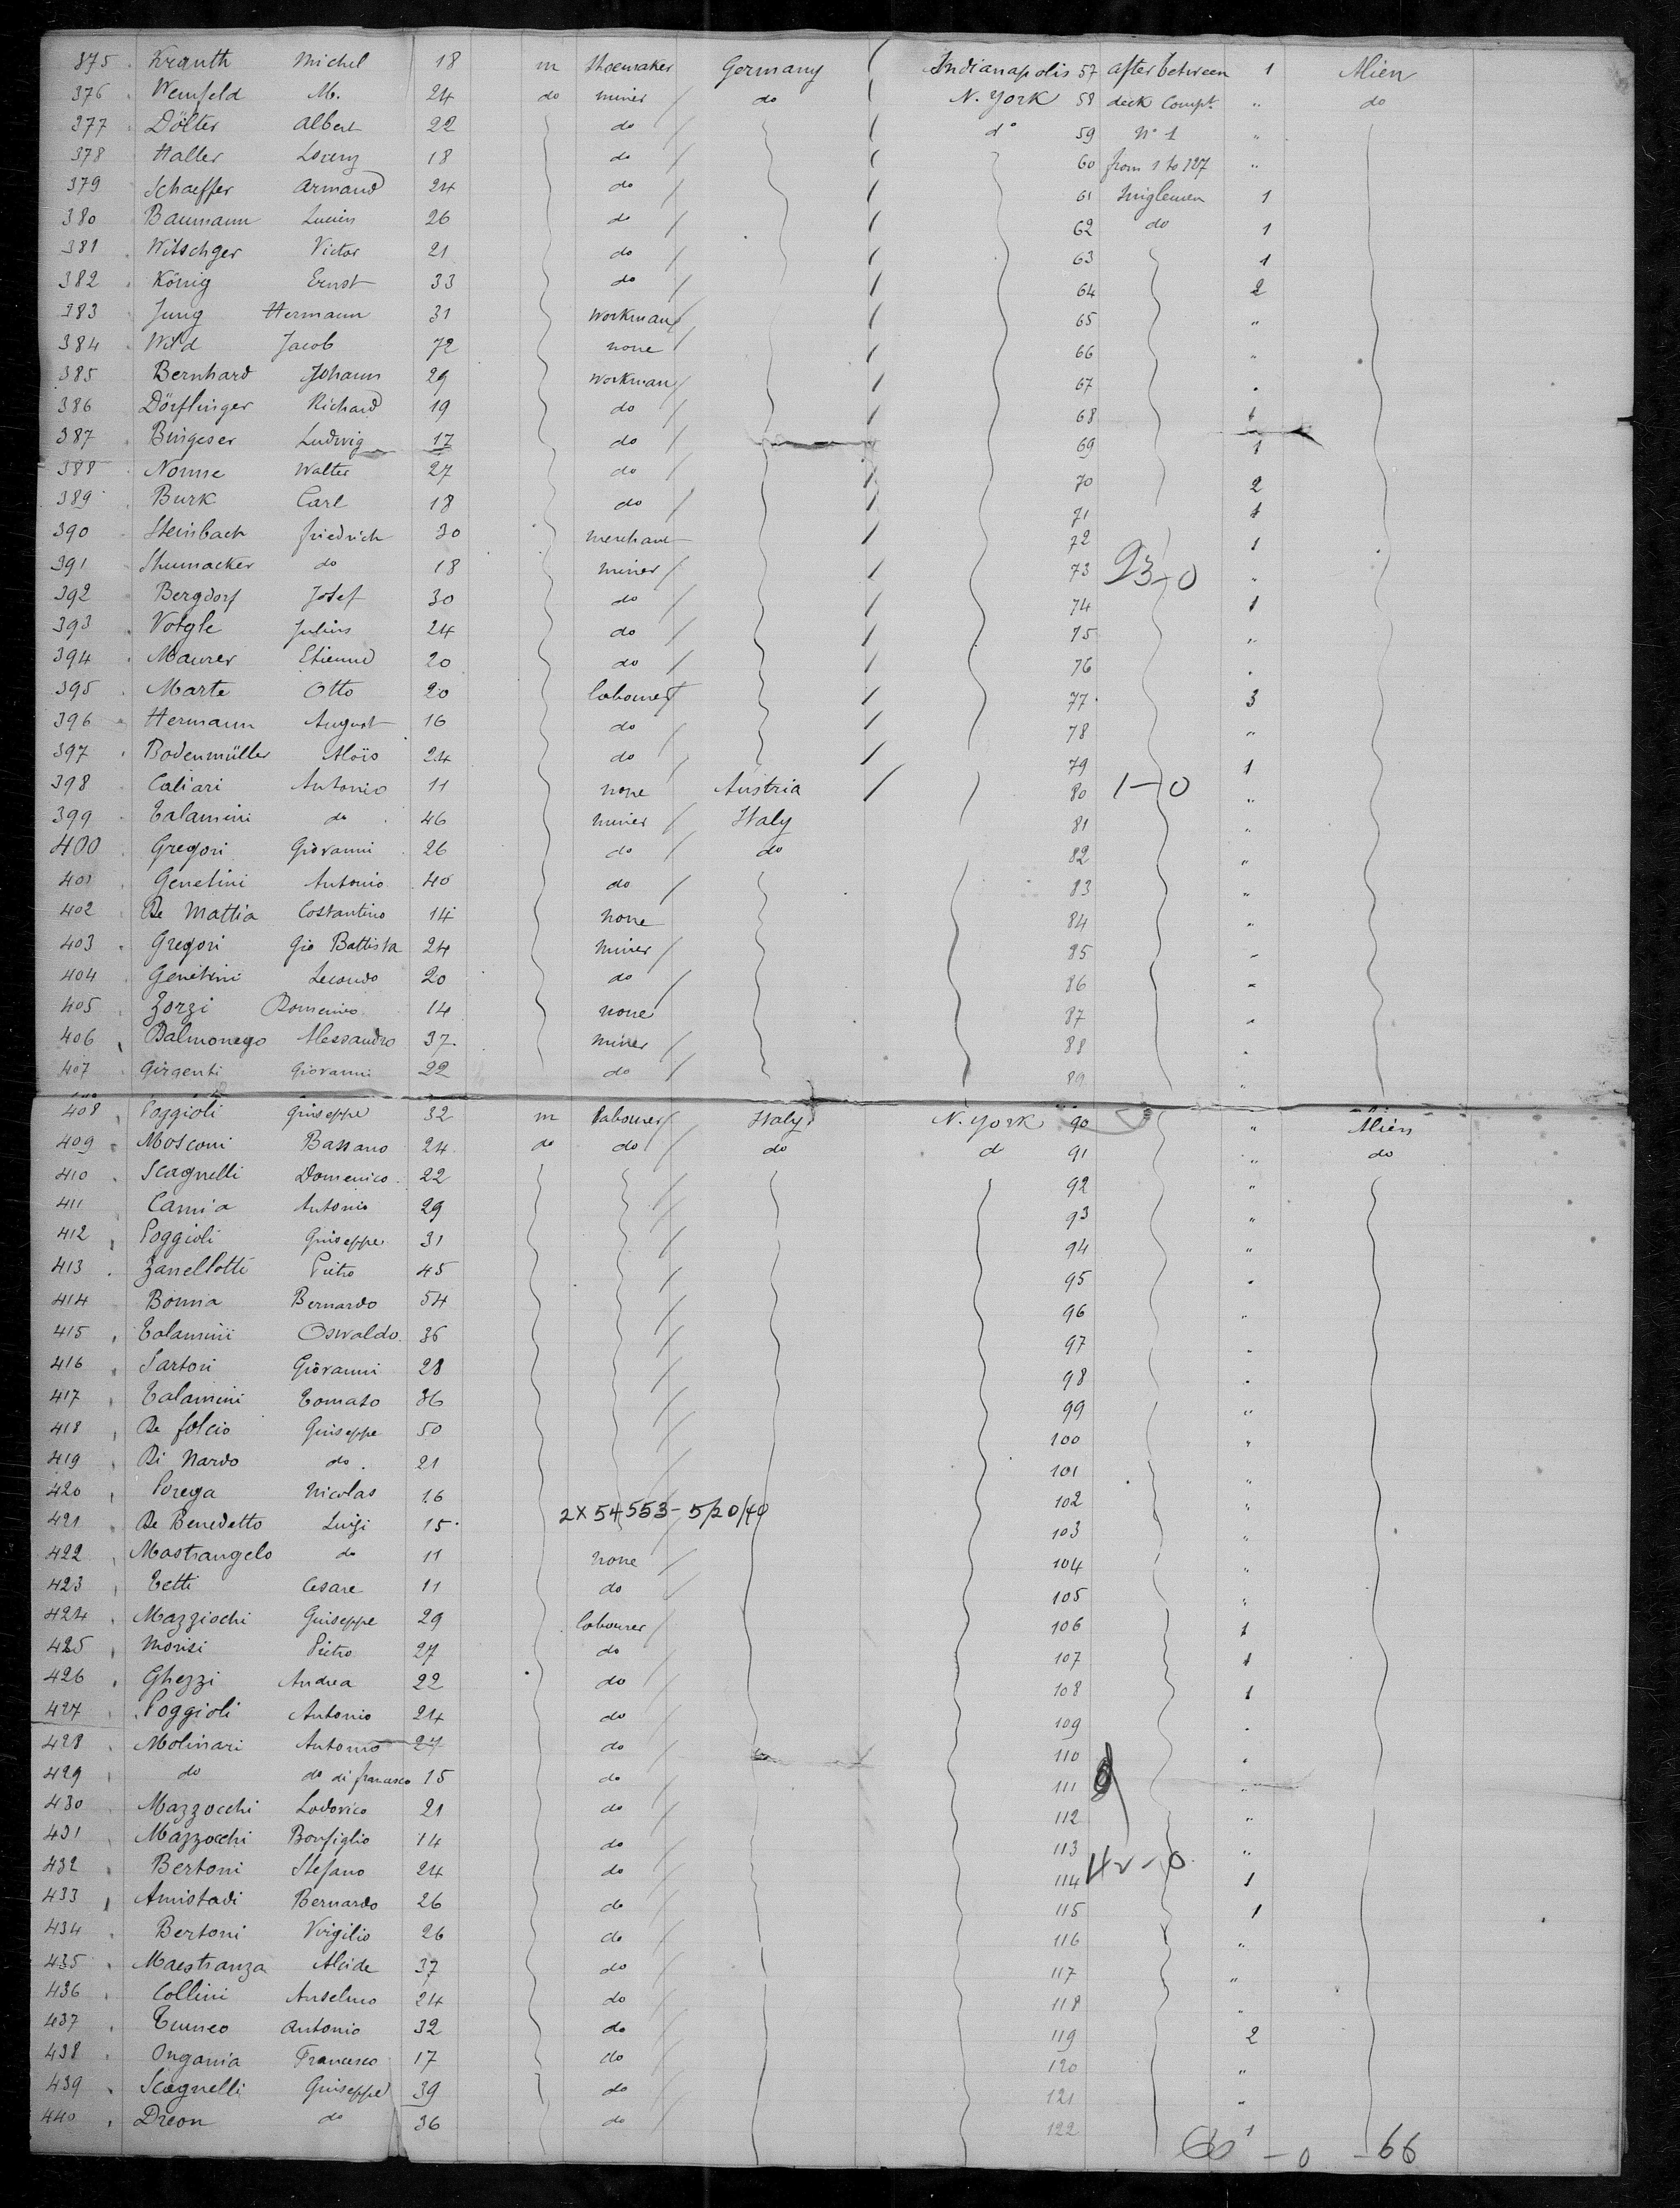 375 Krauth Michel 18 m Shoemaker Germany Indianapolis 57 after between 1 Alien
376 Weinfeld M. 24 do miner do N. York 58 deck Compt. " do
377 Dölter Albert 22 do do 59 N° 1 "
378 Haller Lorenz 18 do 60 from 1 to 127 "
379 Schaeffer Armand 24 do 61 Singlemen 1
380 Baumann Lucien 26 do 62 do 1
381 Witschger Victor 21 do 63 1
382 König Ernst 33 do 64 2
383 Jung Hermann 31 Workman 65 "
384 Wild Jacob 72 none 66 "
385 Bernhard Johann 29 Workman 67 "
386 Dörflinger Richard 19 do 68 1
387 Bingeser Ludwig 17 do 69 1
388 Nonne Walter 27 do 70 2
389 Burk Carl 18 do 71 1
390 Steinbach Friedrich 30 merchant 72 1
391 Shumacker do 18 miner 73 23-0 "
392 Bergdorf Josef 30 do 74 1
393 Votgle Julius 24 do 75 "
394 Maurer Etienne 20 do 76 "
395 Marte Otto 20 labourer 77 3
396 Hermann August 16 do 78 "
397 Bodenmüller Aloïs 24 do 79 1
398 Caliari Antonio 11 none Austria 80 1-0 "
399 Talamini do 46 miner Italy 81 "
400 Gregori Giovanni 26 do do 82 "
401 Genetini Antonio 40 do 83 "
402 De Mattia Costantino 14 none 84 "
403 Gregori Gio Battista 24 miner 85 "
404 Genetini Secondo 20 do 86 "
405 Zorzi Domenico 14 none 87 "
406 Dalmonego Alessandro 37 miner 88 "
407 Girgenti Giovanni 22 do 89 "
408 Poggioli Giuseppe 32 m labourer Italy N. York 90 " Alien
409 Mosconi Bassano 24 do do do d 91 " do
410 Scagnelli Domenico 22 92 "
411 Camia Antonio 29 93 "
412 Poggioli Giuseppe 31 94 "
413 Zanellotti Pietro 45 95 "
414 Bonna Bernardo 54 96 "
415 Talamini Oswaldo 36 97 "
416 Sartori Giovanni 28 98 "
417 Talamini Tomaso 36 99 "
418 De folcio Giuseppe 50 100 "
419 Di Nardo do 21 101 "
420 Porega Nicolas 16 102 "
421 De Benedetto Luigi 15 2X54553-5/20/40 103 "
422 Mastrangelo do 11 none 104 "
423 Tetti Cesare 11 do 105 "
424 Mazziochi Giuseppe 29 labourer 106 1
425 Morisi Pietro 27 do 107 1
426 Ghezzi Andrea 22 do 108 1
427 Poggioli Antonio 24 do 109 "
428 Molinari Antonio 27 do 110 "
429 do do di francesco 15 do 111 "
430 Mazzocchi Lodovico 21 do 112 "
431 Mazzocchi Bonfiglio 14 do 113 "
432 Bertoni Stefano 24 do 114 42-0 1
433 Amistadi Bernardo 26 do 115 1
434 Bertoni Virgilio 26 do 116 "
435 Maestranza Alcide 37 do 117 "
436 Collini Anselmo 24 do 118 "
437 Cuneo Antonio 32 do 119 2
438 Ongania Francesco 17 do 120 "
439 Scagnelli Giuseppe 39 do 121 "
440 Dreon do 36 do 122 1
66 - 0 - 66